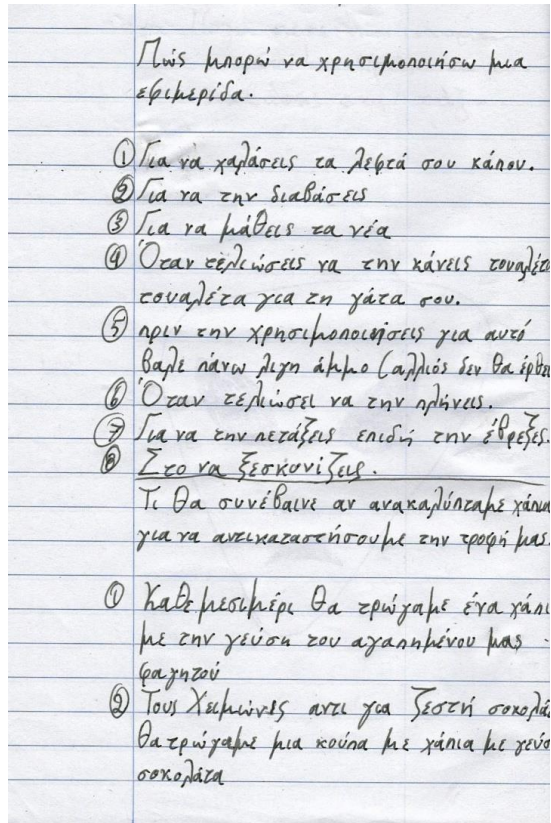 Πώς μπορώ να χρησιμοποιήσω μια
εφιμερίδα.
① Για να χαλάσεις τα λεφτά σου κάπου.
② Για να την διαβάσεις
③ Για να μάθεις τα νέα
④ Όταν τελιώσεις να την κάνεις τουαλέτα
τουαλέτα για τη γάτα σου.
⑤ πριν την χρησιμοποιήσεις για αυτό
βαλε πάνω λιγη άμμο (αλλιός δεν θα έρθει
⑥ Όταν τελιώσει να την πλήνεις.
⑦ Για να την πετάξεις επιδή την έβρεξες.
⑧ Στο να ξεσκονίζεις.
Τι θα συνέβαινε αν ανακαλύπταμε χάπια
για να αντικαταστήσουμε την τροφή μας.
① Καθε μεσιμέρι θα τρώγαμε ένα χάπι
με την γεύση του αγαπημένου μας
φαγητού
② Τους Χειμώνες αντι για ζεστή σοκολά
θα τρώγαμε μια κούπα με χάπια με γεύσ
σοκολάτα